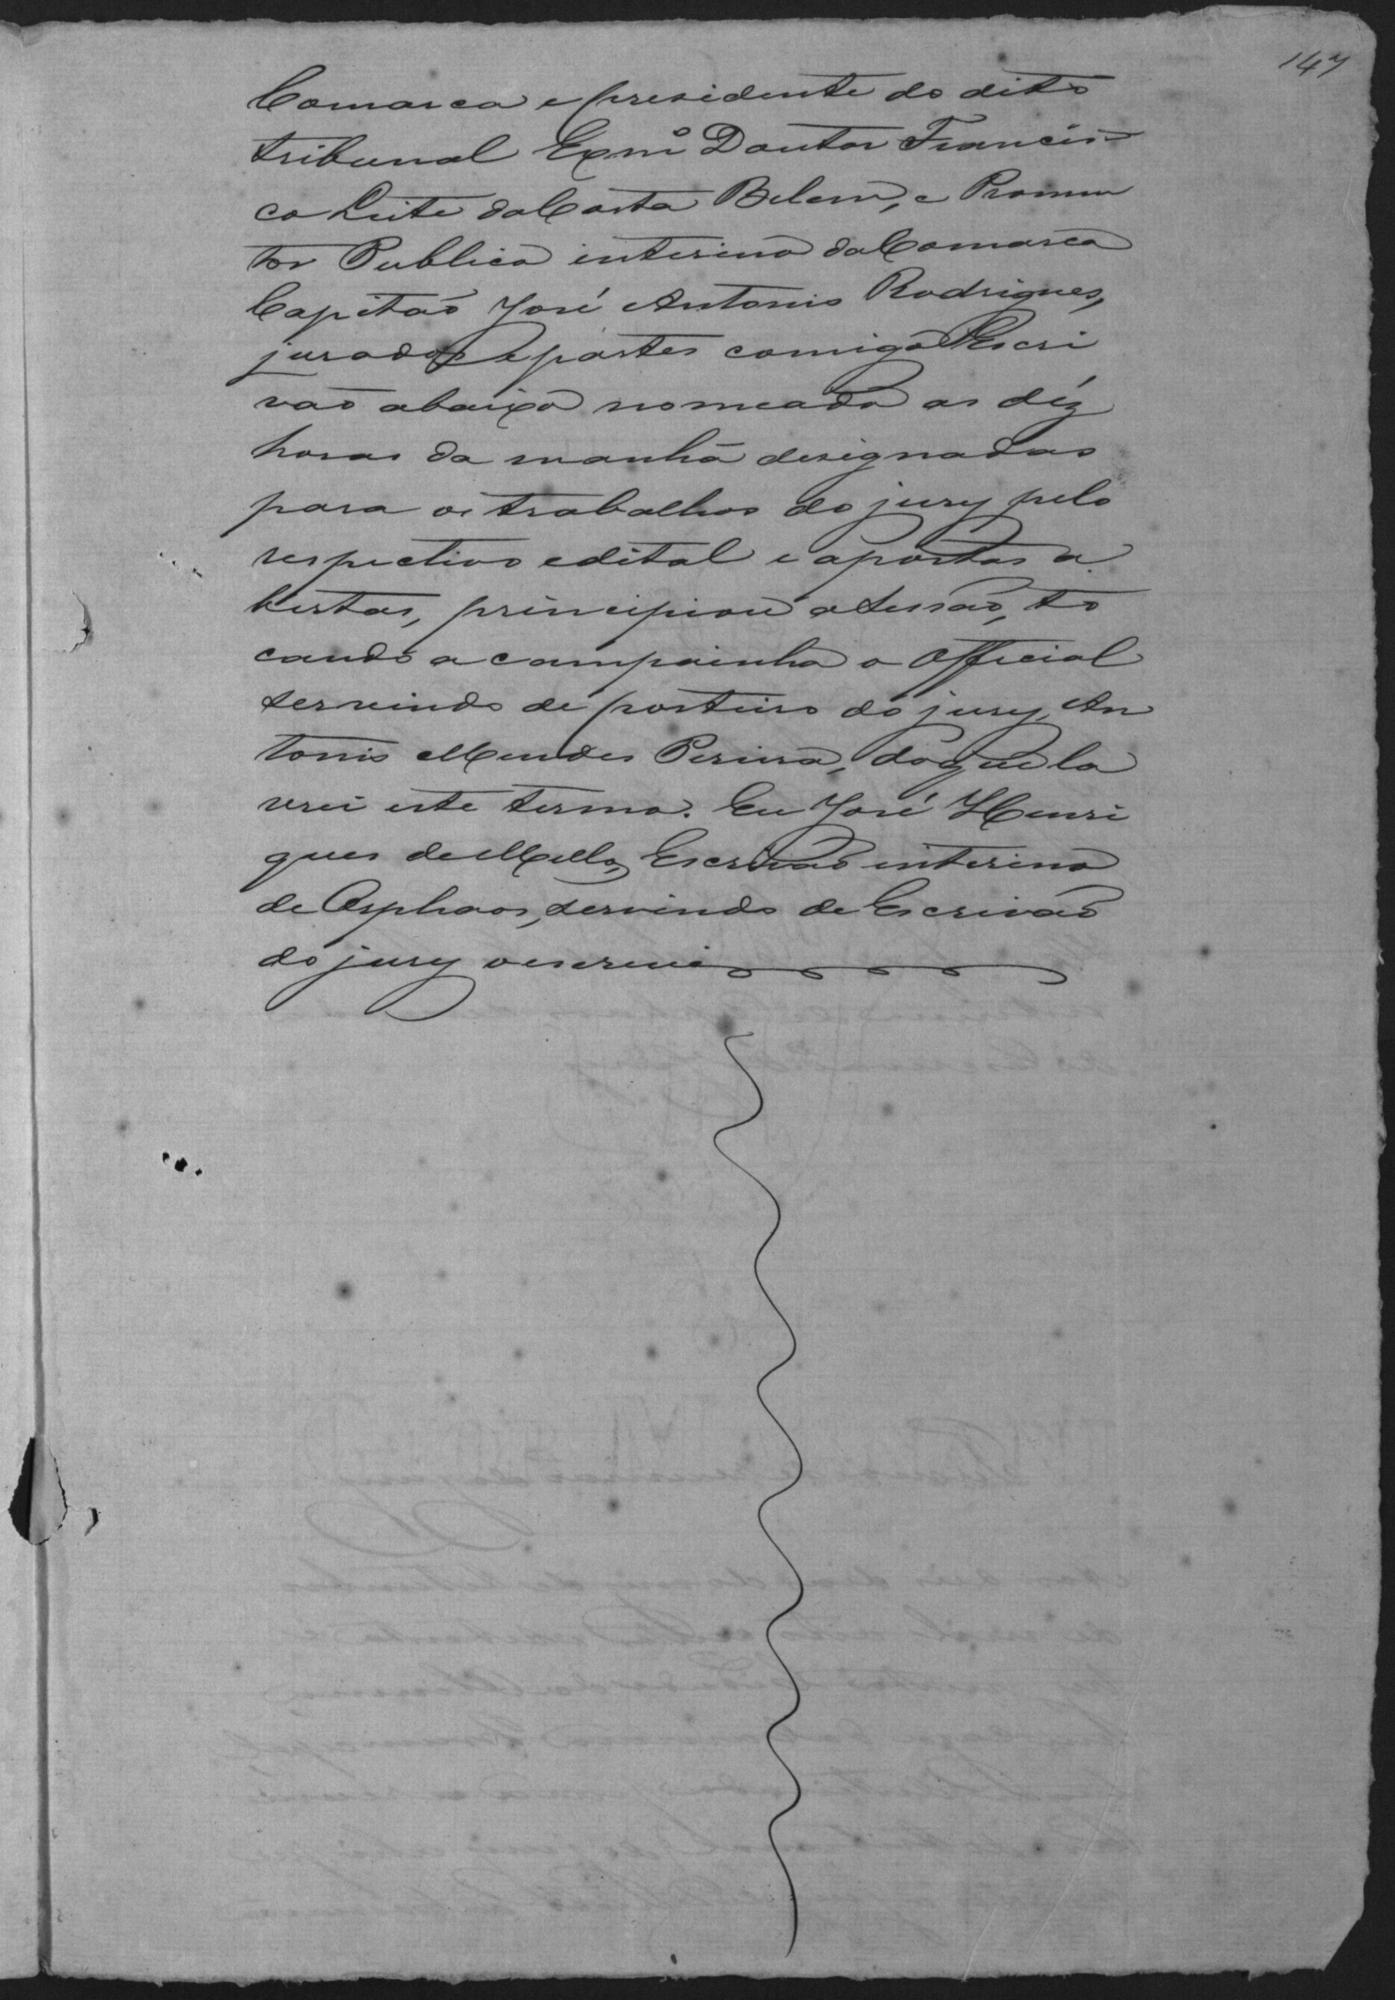 147
Comarca e presidente do dito
tribunal Exmº Doutor Francis-
co Leite da Costa Belem, e Promu
tor Publico interino da Comarca
Capitão José Antonio Rodrigues,
jurados e partes comigo Escri
vão abaixo nomeado as déz
horas da manhã designadas
para os trabalhos do jury pelo
respectivo edital e aportas a
bertas, principiou a sessão, to
cando a campainha o Official
servindo de porteiro do jury, An
tonio Mendes Pereira, do que la
vrei este termo. Eu José Henri
ques de Mello, Escrivão interino
de Orphãos, servindo de Escrivão
do jury o escrevi